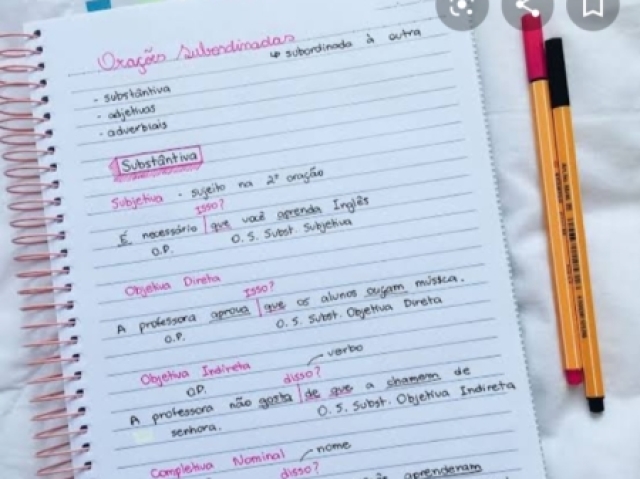 Orações Subordinadas
↳ subordinada à outra
- substântiva
- adjetivas
- adverbiais
Substântiva
Subjetiva - sujeito na 2ª oração
Isso?
É necessário | que você aprenda Inglês
O.P. O. S. Subst. Subjetiva
Objetiva Direta
Isso?
A professora aprova | que os alunos ouçam música.
O.P. O. S. Subst. Objetiva Direta
Objetiva Indireta
verbo
O.P. disso?
A professora não gosta | de que a chamem de
senhora. O. S. Subst. Objetiva Indireta
Completiva Nominal nome
disso?
aprenderam